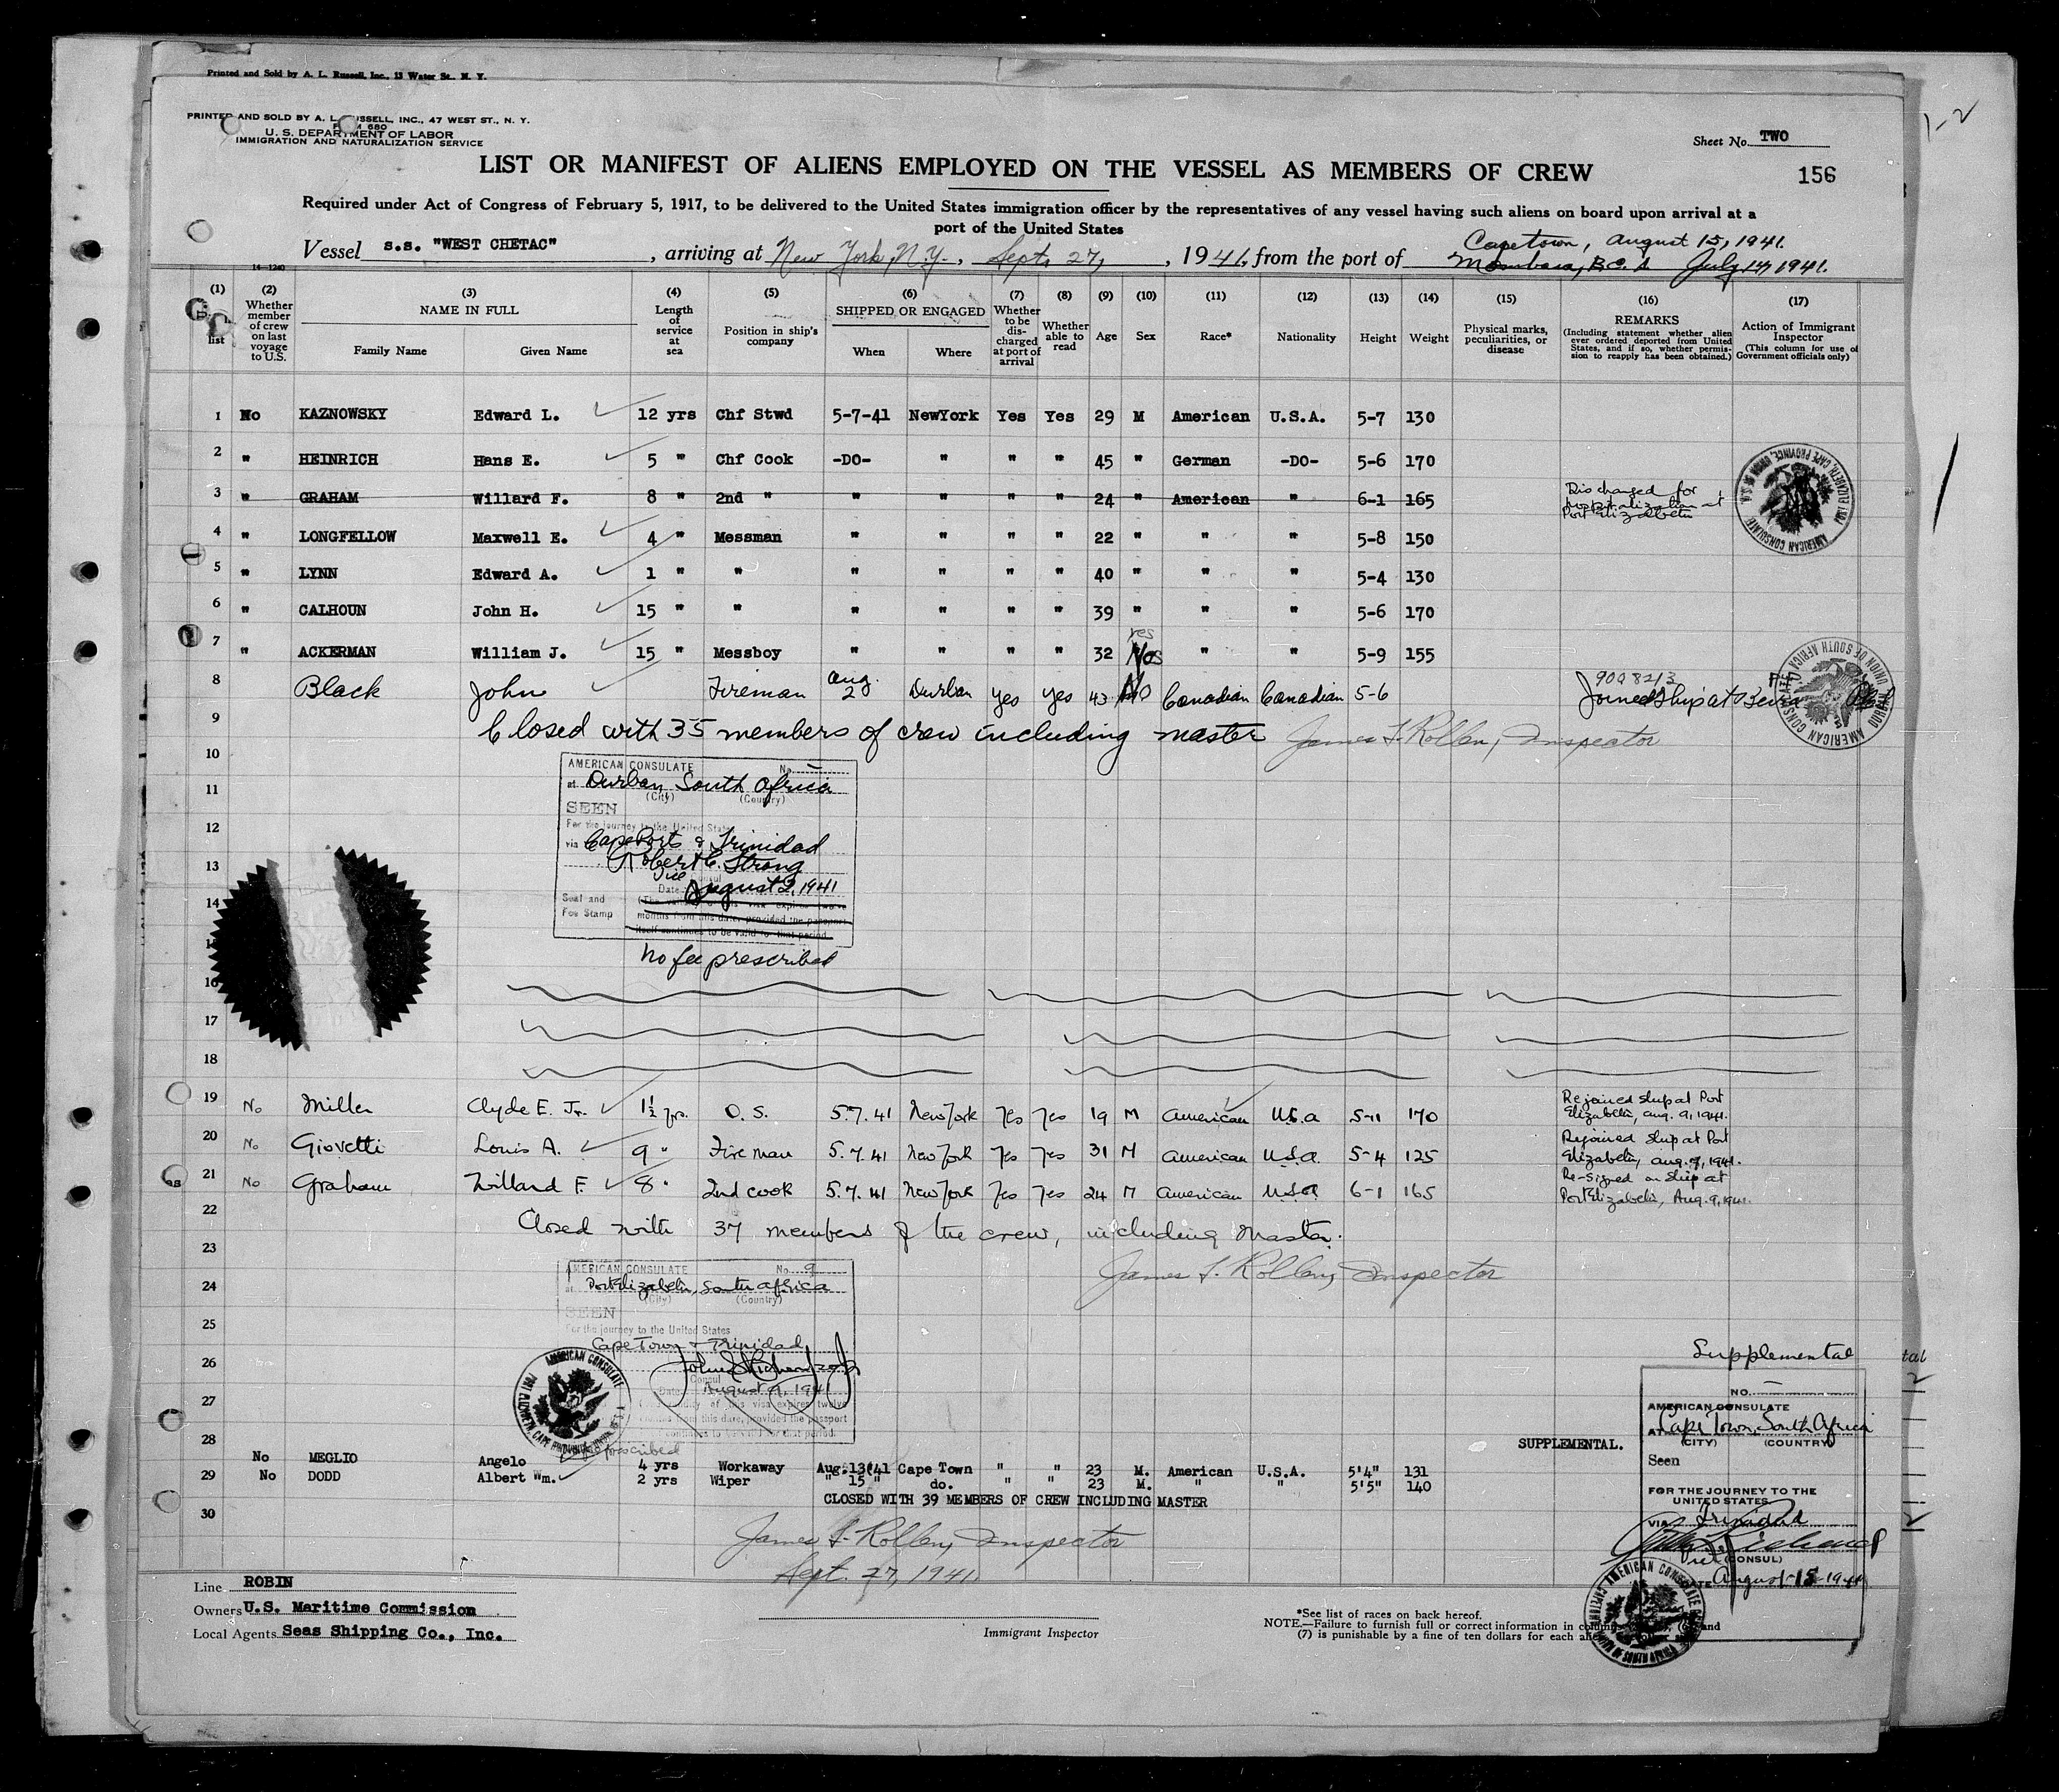 Printed and Sold by A. L. Russell, Inc., 13 Water St., N. Y.
PRINTED AND SOLD BY A. L. RUSSELL, INC., 47 WEST ST., N. Y.
FORM 680
U. S. DEPARTMENT OF LABOR
IMMIGRATION AND NATURALIZATION SERVICE
Sheet No. TWO
LIST OR MANIFEST OF ALIENS EMPLOYED ON THE VESSEL AS MEMBERS OF CREW
156
Required under Act of Congress of February 5, 1917, to be delivered to the United States immigration officer by the representatives of any vessel having such aliens on board upon arrival at a
port of the United States
Capetown, August 15, 1941.
Vessel s.s. "WEST CHETAC", arriving at New York, N.Y., Sept. 27, 1941, from the port of Mombasa, B.E.A. July 17, 1941.
14-1240
(1) (2) (3) (4) (5) (6) (7) (8) (9) (10) (11) (12) (13) (14) (15) (16) (17)
list
Whether member of crew on last voyage to U.S.
NAME IN FULL
Family Name Given Name
Length of service at sea
Position in ship's company
SHIPPED OR ENGAGED
When Where
Whether to be discharged at port of arrival
Whether able to read
Age Sex Race* Nationality Height Weight
Physical marks, peculiarities, or disease
REMARKS
(Including statement whether alien ever ordered deported from United States, and if so, whether permission to reapply has been obtained.)
Action of Immigrant Inspector
(This column for use of Government officials only)
1 No KAZNOWSKY Edward L. 12 yrs Chf Stwd 5-7-41 NewYork Yes Yes 29 M American U.S.A. 5-7 130
2 " HEINRICH Hans E. 5 " Chf Cook -DO- " " " 45 " German -DO- 5-6 170
3 " GRAHAM Willard F. 8 " 2nd " " " " " 24 " American " 6-1 165 Discharged for hospitalization at Port Elizabeth
4 " LONGFELLOW Maxwell E. 4 " Messman " " " " 22 " " " 5-8 150
5 " LYNN Edward A. 1 " " " " " " 40 " " " 5-4 130
6 " CALHOUN John H. 15 " " " " " " 39 " " " 5-6 170
yes
7 " ACKERMAN William J. 15 " Messboy " " " " 32 " " 5-9 155
8 Black John Fireman Aug. 2 Durban yes yes 43 Canadian Canadian 5-6 Joined ship at
9 Closed with 35 members of crew including master James S. Rollen, Inspector
10
AMERICAN CONSULATE No. —
11
at Durban, South Africa
(City) (Country)
SEEN
12
For the journey to the United States
via Cape Ports & Trinidad
13
Robert C. Strong
Vice Consul
Date August 2, 1941
14
Seal and Fee Stamp
(The validity of this visa expires twelve months from this date, provided the passport itself continues to be valid for that period.
No fee prescribed
16
17
18
19 No Miller Clyde E. Jr. 1½ yrs. O. S. 5.7.41 New York Yes Yes 19 M American U.S.A 5-11 170 Rejoined ship at Port Elizabeth, Aug. 9, 1941.
20 No Giovetti Louis A. 9 " Fireman 5.7.41 New York Yes Yes 31 M American U.S.A. 5-4 125 Rejoined ship at Port Elizabeth, Aug. 9, 1941.
21 No Graham Willard F. 8 " 2nd cook 5.7.41 New York Yes Yes 24 M American U.S.A 6-1 165 Re-signed on ship at Port Elizabeth, Aug. 9, 1941.
22 Closed with 37 members of the crew, including Master.
23
James S. Rollen, Inspector
AMERICAN CONSULATE No. 9
24
at Port Elizabeth, South Africa
(City) (Country)
SEEN
25
For the journey to the United States
Cape Town & Trinidad
26
Consul
Date August 9, 1941
27
validity of this visa expires twelve months from this date, provided the passport continues to be valid for that period.
prescribed
AMERICAN CONSULATE PORT ELIZABETH, CAPE PROVINCE
Supplemental
NO. —
AMERICAN CONSULATE
AT Cape Town, South Africa
(CITY) (COUNTRY)
28
SUPPLEMENTAL.
No MEGLIO Angelo 4 yrs Workaway Aug. 13 '41 Cape Town " " 23 M. American U.S.A. 5'4" 131
29 No DODD Albert Wm. 2 yrs Wiper 15 " do. " " 23 M. " " 5'5" 140
CLOSED WITH 39 MEMBERS OF CREW INCLUDING MASTER
30
Seen
FOR THE JOURNEY TO THE UNITED STATES
VIA Trinidad
(CONSUL)
August 15 1941
James S. Rollen, Inspector
Sept. 27, 1941
Line ROBIN
Owners U.S. Maritime Commission
Local Agents Seas Shipping Co., Inc.
Immigrant Inspector
*See list of races on back hereof.
NOTE.—Failure to furnish full or correct information in columns and
(7) is punishable by a fine of ten dollars for each alien